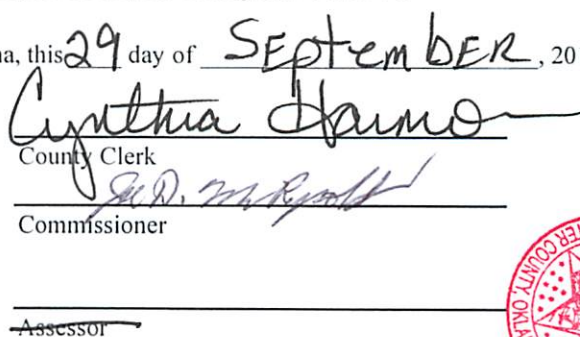 na, this 29 day of SEptembER, 20
Cynthia
County Clerk
Commissioner
Assessor
TER COUNTY, OKLA